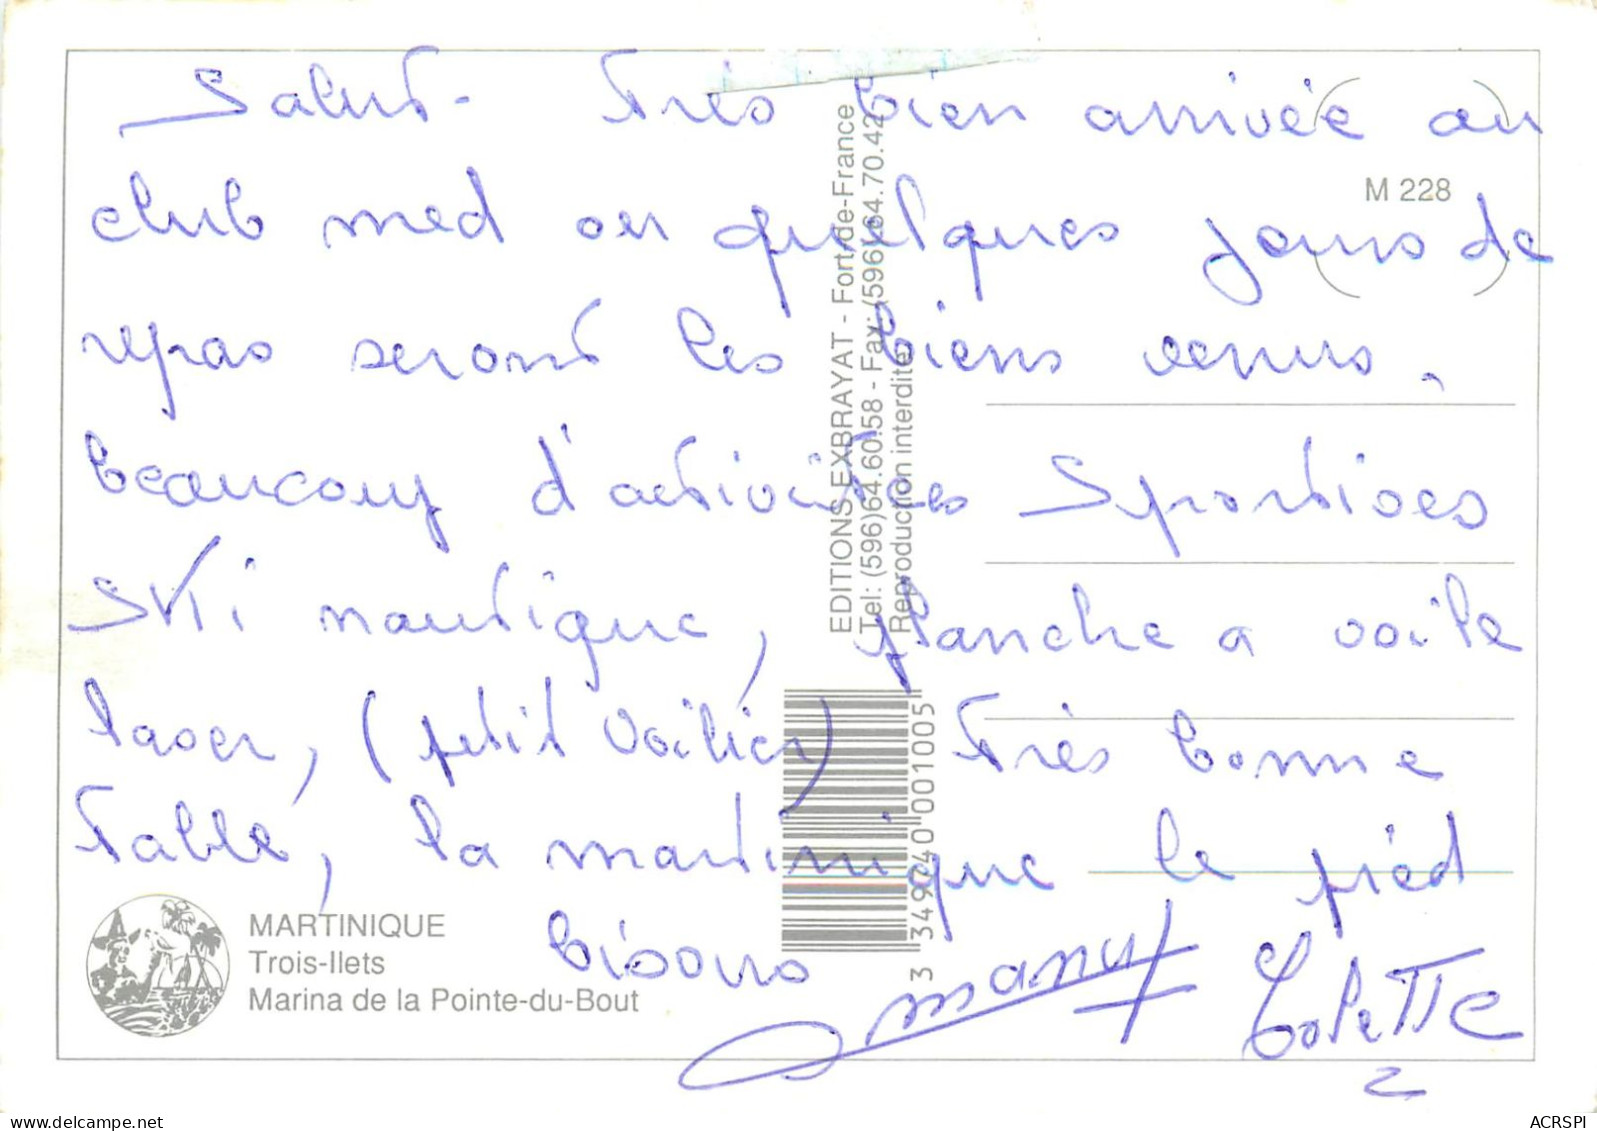 Salut - très bien arrivée au
club med ou quelques jours de
repas seront les biens venus.
beaucoup d'activitées Sportives
SKi nautique, planche a voile
laser, (petit voilier) très bonne
table, la martinique le pied
bisous manu Colette
M 228
EDITIONS EXBRAYAT - Fort-de-France
Tel: (596)64.60.58 - Fax: (596)64.70.42
Reproduction interdite
3 349740 001005
MARTINIQUE
Trois-Ilets
Marina de la Pointe-du-Bout
ACRSPI